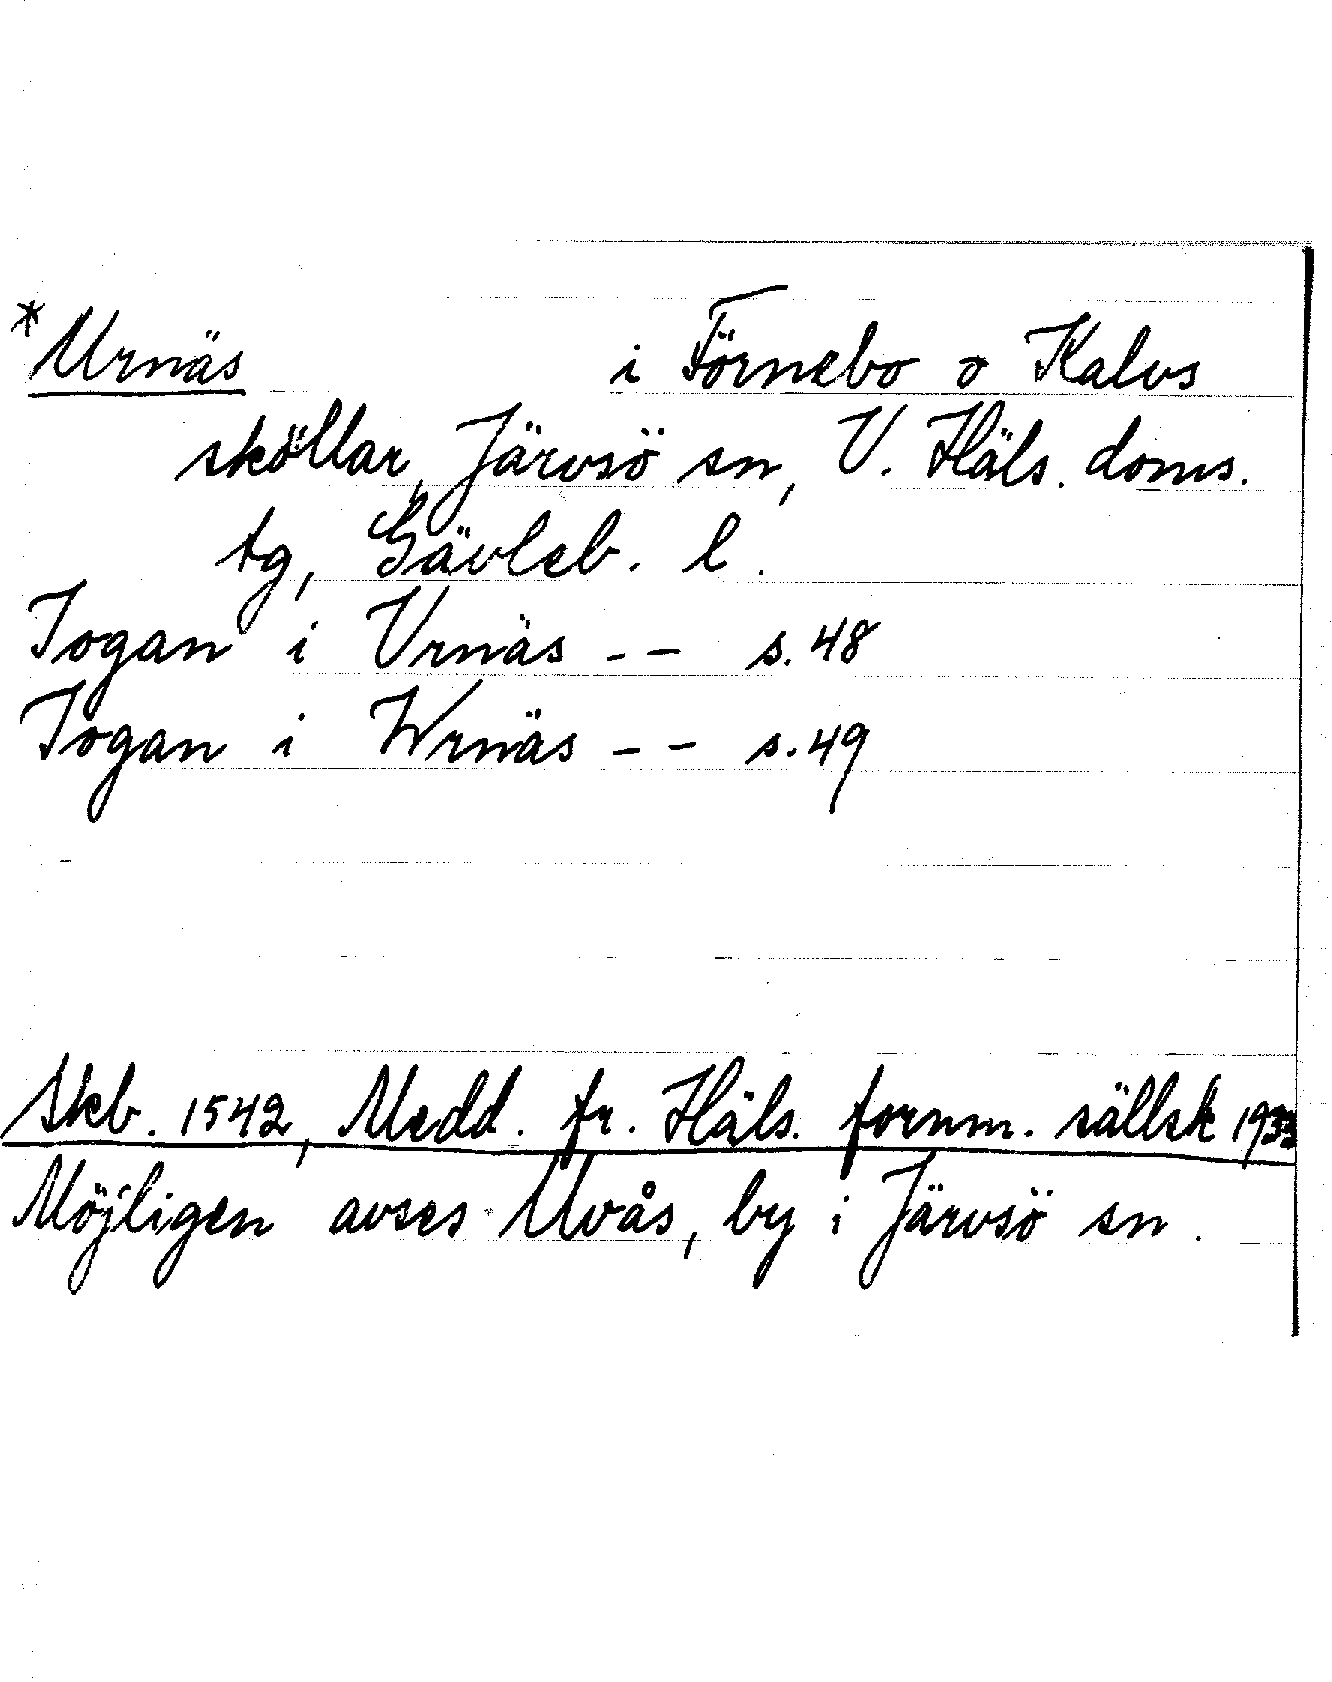 *Urnäs i Förnebo o Kalvs
sköllar, Järvsö sn, V. Häls. doms.
tg, Gävleb. l.
Jogan i Vrnäs -- s. 48
Jogan i Wrnäs -- s. 49
Skb. 1542, Medd. fr. Häls. fornm. sällsk 1933
Möjligen avses Uvås, by i Järvsö sn.